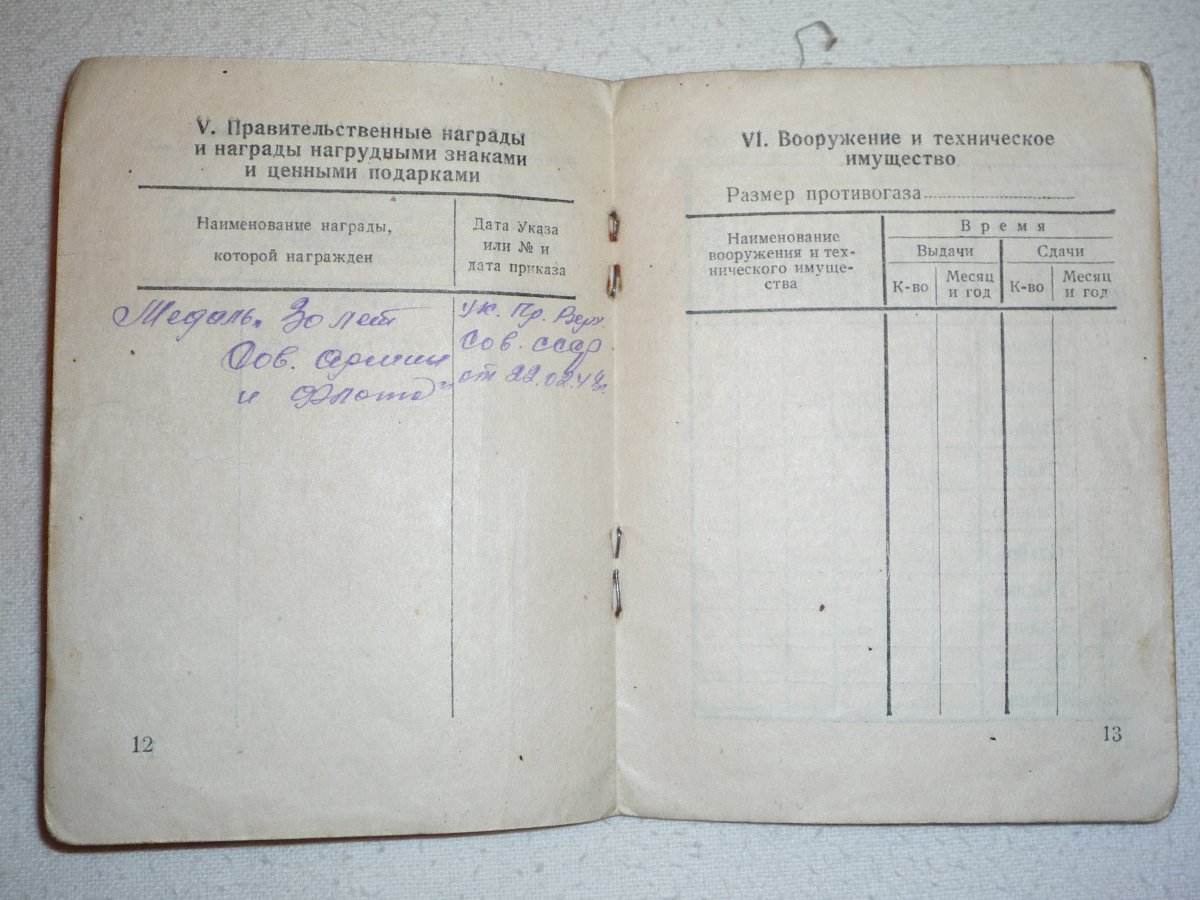 V. Правительственные награды
и награды нагрудными знаками
и ценными подарками
Наименование награды,
которой награжден
Дата Указа
или № и
дата приказа
Медаль „30 лет
Сов. армии
и Флота"
Ук. Пр. Верх.
Сов. ссср
от 22.02.48г.
12
VI. Вооружение и техническое
имущество
Размер противогаза
Наименование
вооружения и тех-
нического имуще-
ства
Время
Выдачи
Сдачи
К-во
Месяц
и год
К-во
Месяц
и год
13